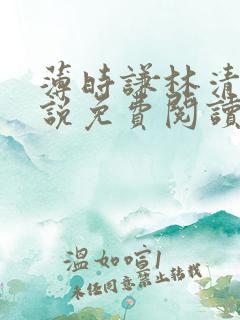 薄時謙林清
說免費閱讀
溫如喧1
未经同意禁止转载